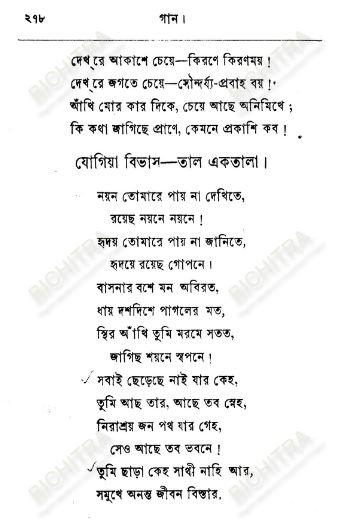 ২১৮ গান।
দেখ্‌রে আকাশে চেয়ে—কিরণে কিরণময়!
দেখ্‌রে জগতে চেয়ে—সৌন্দর্য্য-প্রবাহ বয়!
আঁখি মোর কার দিকে, চেয়ে আছে অনিমিখে;
কি কথা জাগিছে প্রাণে, কেমনে প্রকাশি কব!
যোগিয়া বিভাস—তাল একতালা।
নয়ন তোমারে পায় না দেখিতে,
রয়েছ নয়নে নয়নে!
হৃদয় তোমারে পায় না জানিতে,
হৃদয়ে রয়েছ গোপনে।
বাসনার বশে মন অবিরত,
ধায় দশদিশে পাগলের মত,
স্থির আঁখি তুমি মরমে সতত,
জাগিছ শয়নে স্বপনে!
সবাই ছেড়েছে নাই যার কেহ,
তুমি আছ তার, আছে তব স্নেহ,
নিরাশ্রয় জন পথ যার গেহ,
সেও আছে তব ভবনে!
তুমি ছাড়া কেহ সাথী নাহি আর,
সমুখে অনন্ত জীবন বিস্তার,
BICHITRA
BICHITRA
BICHITRA
BICHITRA
BICHITRA
BICHITRA